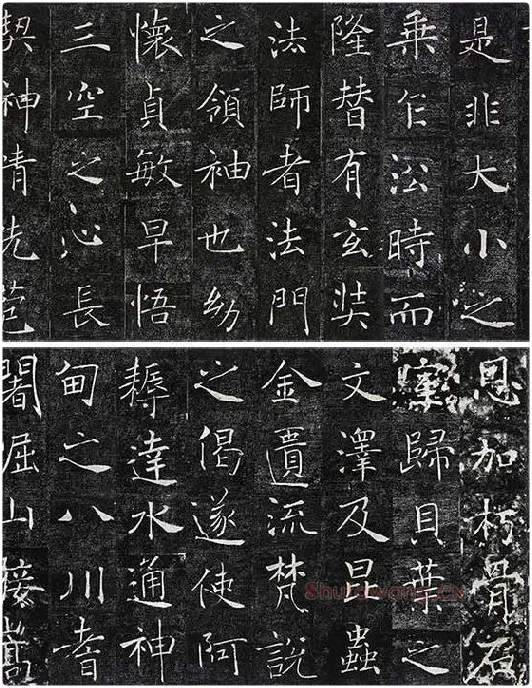 是非大小之
乘乍㳂時而
隆替有玄奘
法師者法門
之領袖也幼
懷貞敏早悟
三空之心長
契神情先苞
恩加朽骨石
室歸貝葉之
文澤及昆蟲
金匱流梵說
之偈遂使阿
耨達水通神
甸之八川耆
闍崛山接嵩